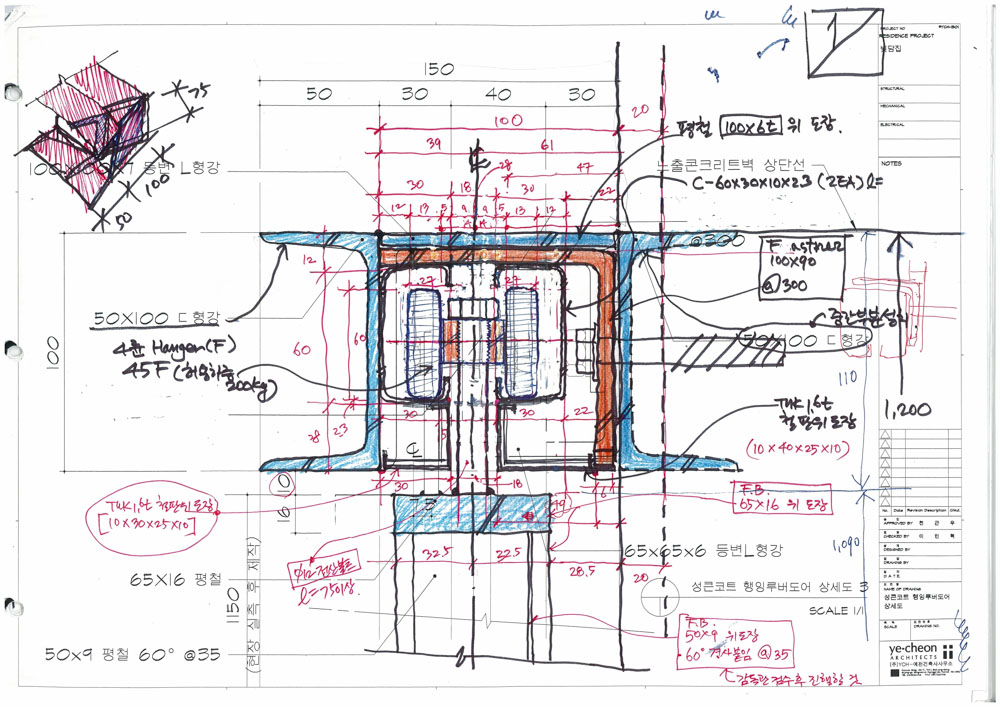 PROJECT NO
RESIDENCE PROJECT
STRUCTURAL
MECHANICAL
ELECTRICAL
NOTES
1
150
50
30
40
30
20
100
39
61
28
47
30
18
30
22
12
13
5
9
9
5
13
17
75
100
50
등변 L형강
평철 100x6t 위 도장.
노출콘크리트벽 상단선
C-60x30x10x2.3 (2EA) l=
@300
Fastner
100x90
@300
50X100 ㄷ형강
4륜 Hanger(F)
45F (허용하중
300kg)
100
12
27
27
60
60
38
23
30
30
22
50X100 ㄷ형강
110
1,200
THK1.6t
철판위도장
(10x40x25x10)
THK1.6t 철판위도장
[10x30x25x10]
10
16
30
18
6
19
F.B.
65x16 위 도장
65X6 등변L형강
1,090
65X16 평철
l=75이상.
32.5
22.5
28.5
20
1150
(현장 실측 후 제작)
50x9 평철 60° @35
F.B.
50x9 위도장
60° 경사붙임 @35
감독관 검수후 진행할 것
성큰코트 행잉루버도어 상세도 3
SCALE 1/1
No. Date Revision Description Chkd.
APPROVED BY
CHECKED BY
DESIGNED BY
DRAWING BY
DATE
NAME OF DRAWING
성큰코트 행잉루버도어
상세도
SCALE
DRAWING NO.
ye-cheon
ARCHITECTS
(주)YCH-예천건축사사무소